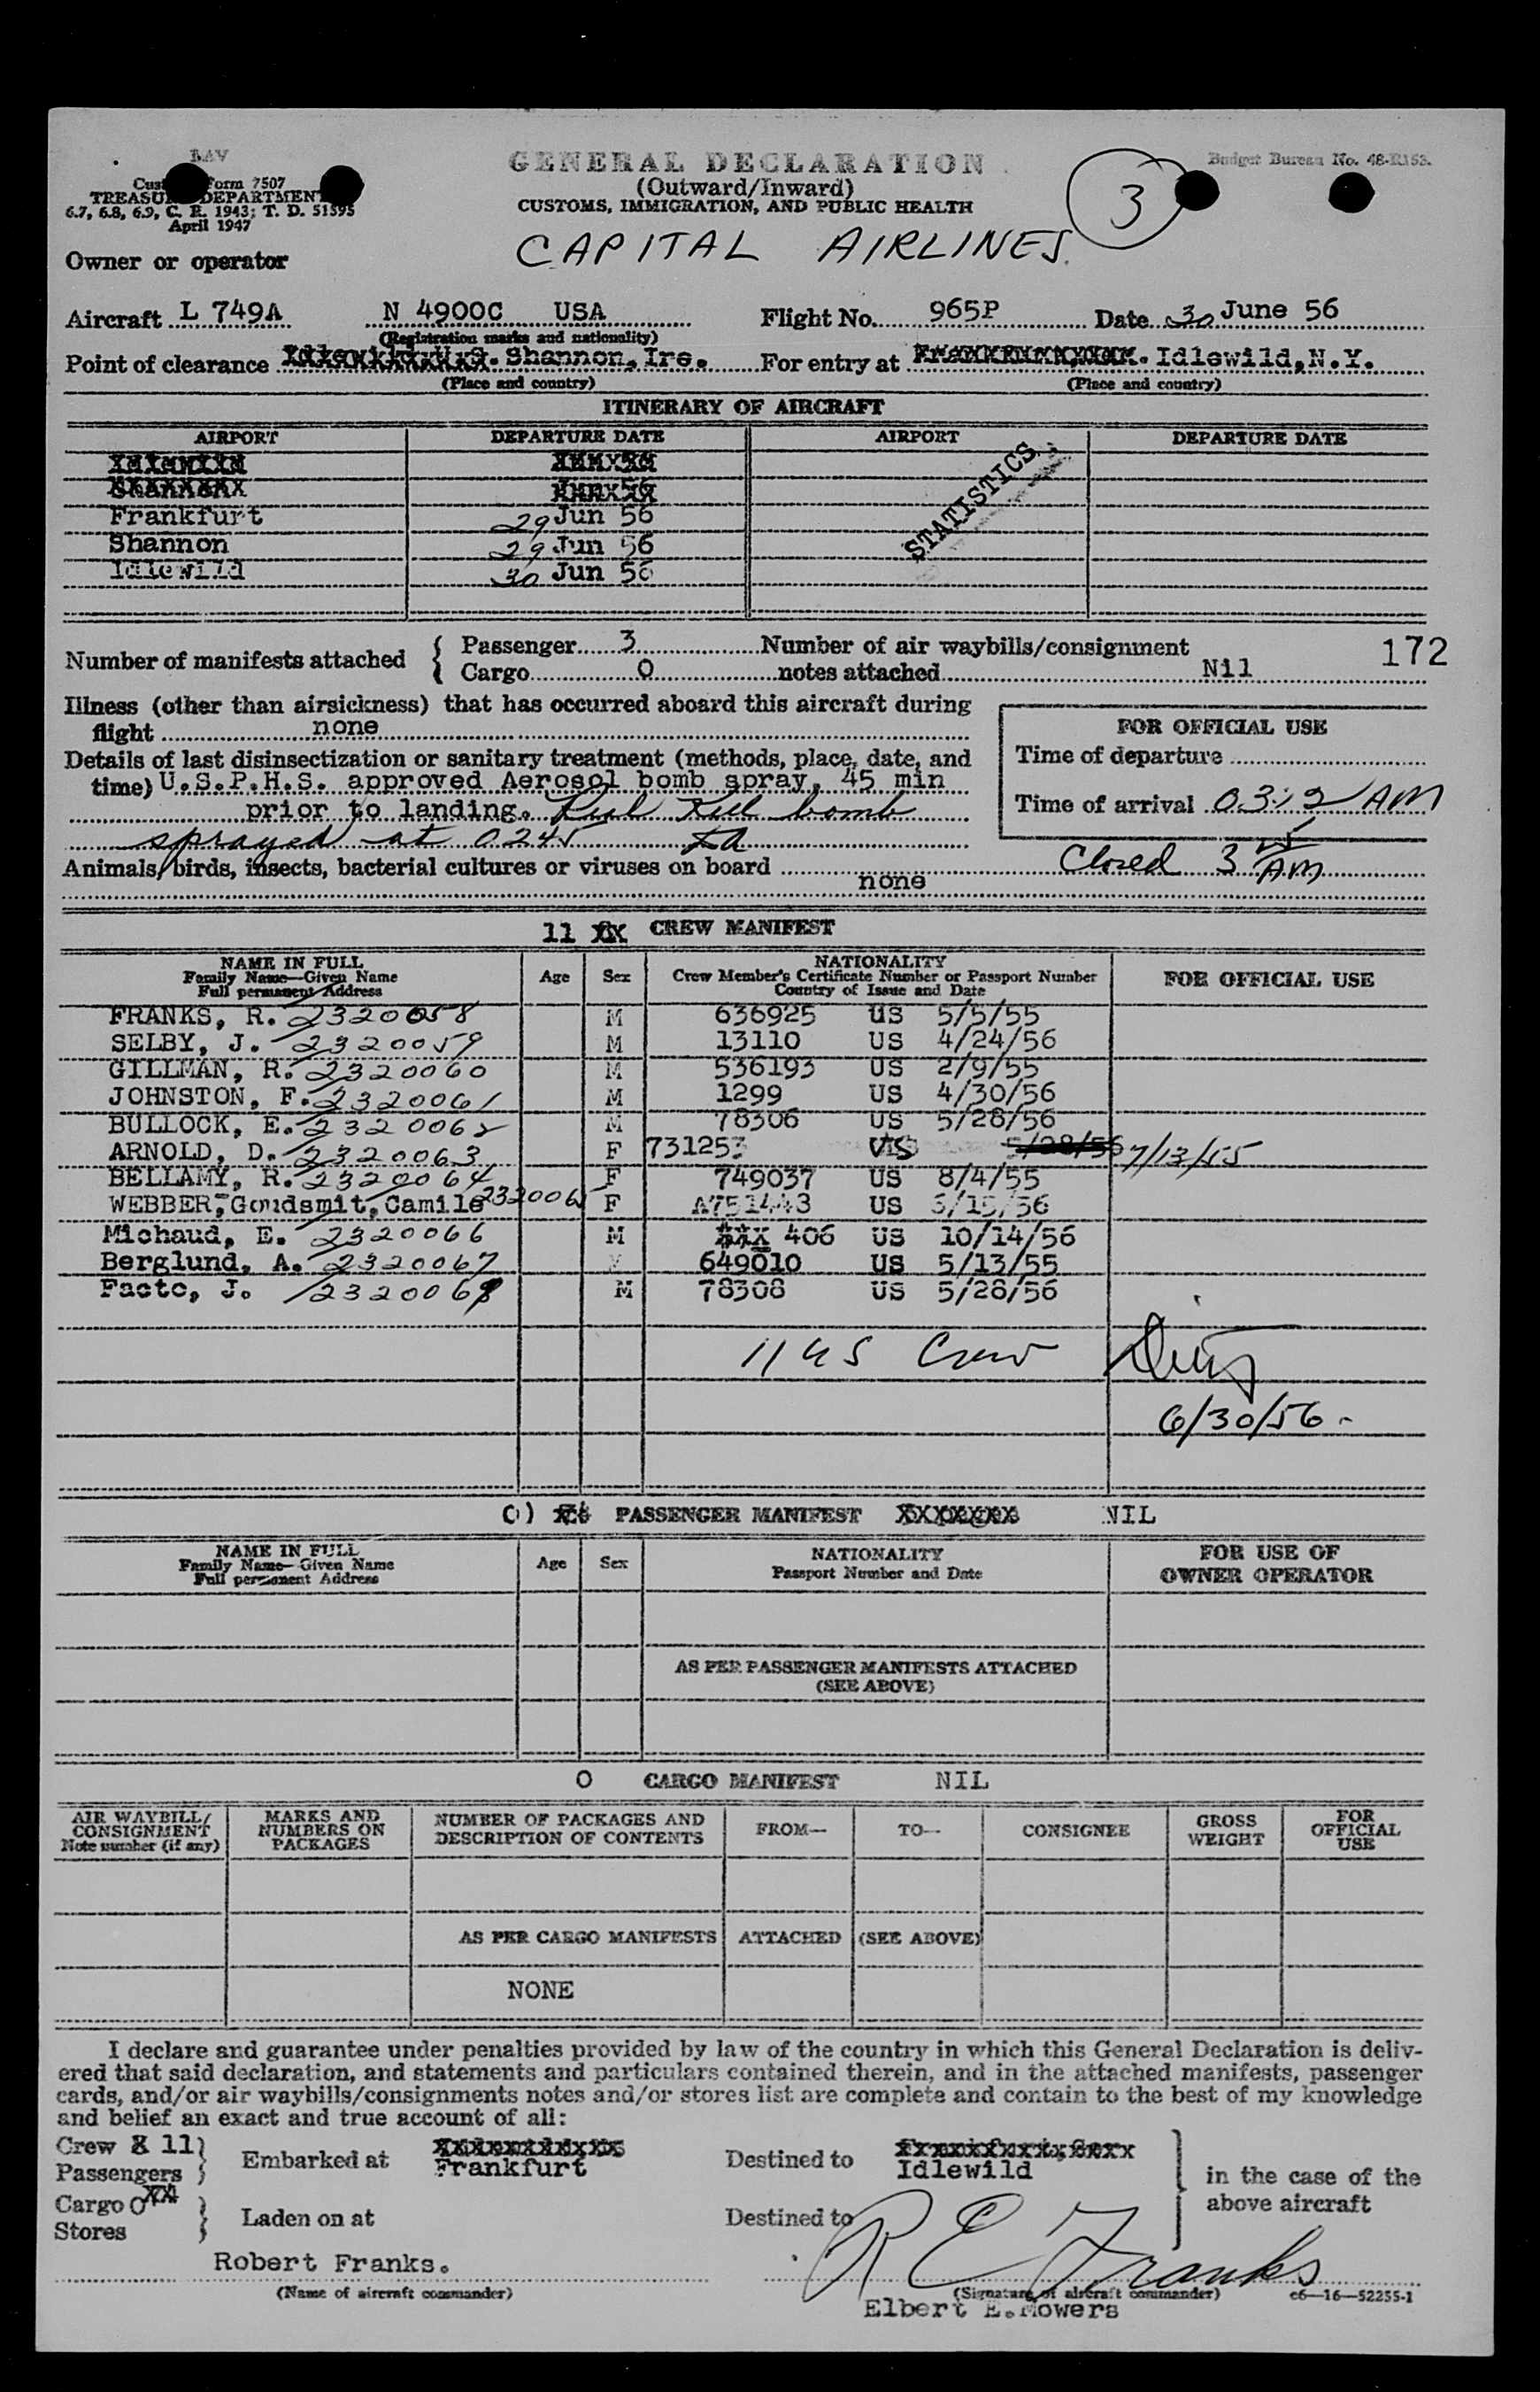 DAV
GENERAL DECLARATION
Budget Bureau No. 48-R153.
Form 7507
(Outward/Inward)
3
6.7, 6.8, 6.9, C. R. 1943; T. D. 51595
CUSTOMS, IMMIGRATION, AND PUBLIC HEALTH
April 1947
CAPITAL AIRLINES
Owner or operator
Aircraft L 749A N 4900C USA Flight No. 965P Date 30 June 56
(Registration marks and nationality)
Point of clearance Shannon, Ire. For entry at Idlewild, N.Y.
(Place and country) (Place and country)
ITINERARY OF AIRCRAFT
AIRPORT DEPARTURE DATE AIRPORT DEPARTURE DATE
STATISTICS
Frankfurt 29 Jun 56
Shannon 29 Jun 56
Idlewild 30 Jun 56
Number of manifests attached { Passenger 3 Number of air waybills/consignment
Cargo 0 notes attached Nil
172
Illness (other than airsickness) that has occurred aboard this aircraft during
flight none
FOR OFFICIAL USE
Details of last disinsectization or sanitary treatment (methods, place, date, and
Time of departure
time) U.S.P.H.S. approved Aerosol bomb spray, 45 min
Time of arrival 03:12 AM
prior to landing. bomb
sprayed at 0245
Closed 3 25 AM
Animals, birds, insects, bacterial cultures or viruses on board none
11 CREW MANIFEST
NAME IN FULL
Family Name—Given Name
Full permanent Address
Age Sex
NATIONALITY
Crew Member's Certificate Number or Passport Number
Country of Issue and Date
FOR OFFICIAL USE
FRANKS, R. 2320058 M 636925 US 5/5/55
SELBY, J. 2320059 M 13110 US 4/24/56
GILLMAN, R. 2320060 M 536193 US 2/9/55
JOHNSTON, F. 2320061 M 1299 US 4/30/56
BULLOCK, E. 2320062 M 78306 US 5/28/56
ARNOLD, D. 2320063 F 731253 US 5/28/56 7/13/55
BELLAMY, R. 2320064 F 749037 US 8/4/55
WEBBER, Goudsmit, Camile 2320065 F A751443 US 6/15/56
Michaud, E. 2320066 M 406 US 10/14/56
Berglund, A. 2320067 649010 US 5/13/55
Facto, J. 2320068 M 78308 US 5/28/56
11 US Crew
6/30/56
0) PASSENGER MANIFEST NIL
NAME IN FULL
Family Name—Given Name
Full permanent Address
Age Sex
NATIONALITY
Passport Number and Date
FOR USE OF
OWNER OPERATOR
AS PER PASSENGER MANIFESTS ATTACHED
(SEE ABOVE)
0 CARGO MANIFEST NIL
AIR WAYBILL/
CONSIGNMENT
Note number (if any)
MARKS AND
NUMBERS ON
PACKAGES
NUMBER OF PACKAGES AND
DESCRIPTION OF CONTENTS
FROM— TO— CONSIGNEE
GROSS
WEIGHT
FOR
OFFICIAL
USE
AS PER CARGO MANIFESTS ATTACHED (SEE ABOVE)
NONE
I declare and guarantee under penalties provided by law of the country in which this General Declaration is deliv-
ered that said declaration, and statements and particulars contained therein, and in the attached manifests, passenger
cards, and/or air waybills/consignments notes and/or stores list are complete and contain to the best of my knowledge
and belief an exact and true account of all:
Crew 11
Passengers
Embarked at Frankfurt
Destined to Idlewild
in the case of the
above aircraft
Cargo 0
Stores
Laden on at
Destined to
Robert Franks.
R E Franks
(Name of aircraft commander) (Signature of aircraft commander) c6—16—52255-1
Elbert E. Mowers